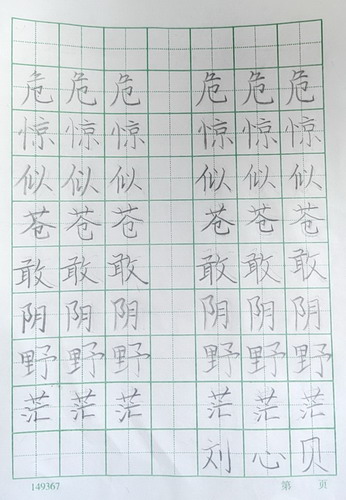 危危危 危危危
惊惊惊 惊惊惊
似似似 似似似
苍苍苍 苍苍苍
敢敢敢 敢敢敢
阴阴阴 阴阴阴
野野野 野野野
茫茫茫 茫茫茫
刘心贝
149367 第 页